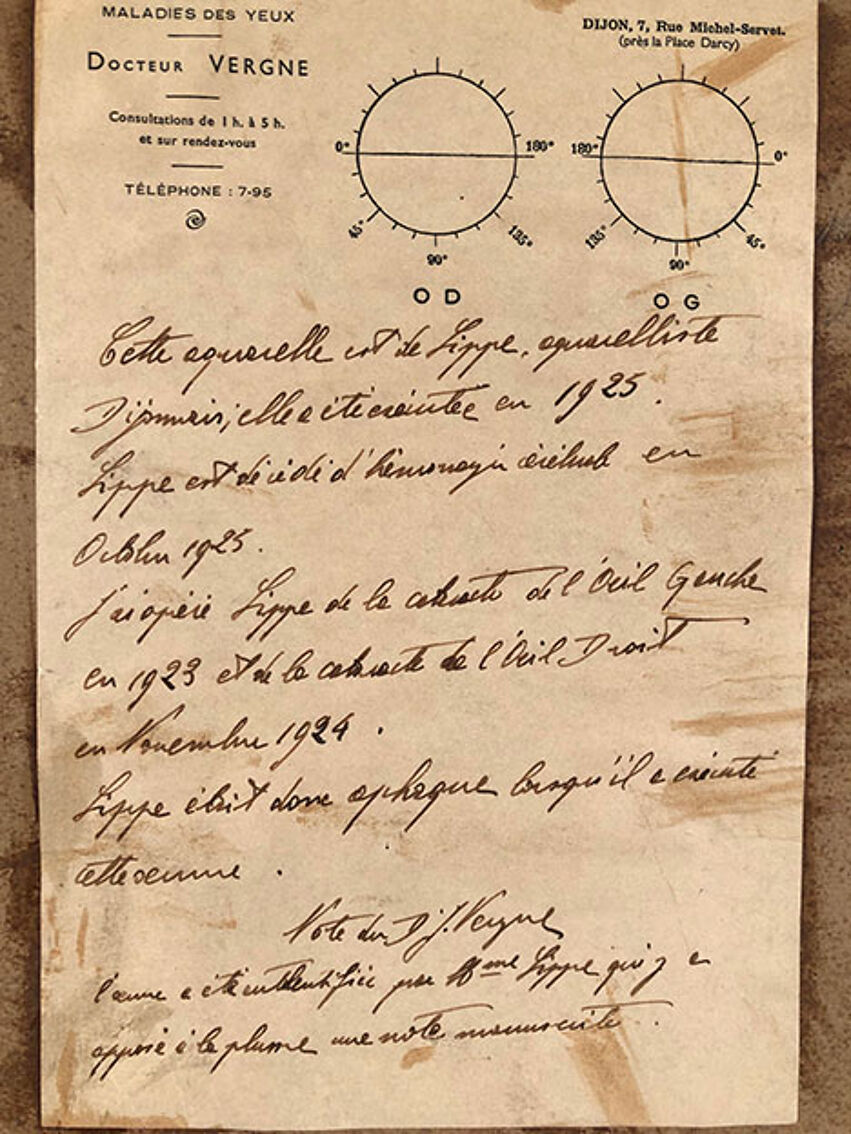 MALADIES DES YEUX
DOCTEUR VERGNE
Consultations de 1 h. à 5 h.
et sur rendez-vous
TÉLÉPHONE : 7-95
DIJON, 7, Rue Michel-Servet.
(près la Place Darcy)
0° 180° 180° 0°
45° 135° 135° 45°
90° 90°
O D O G
Cette aquarelle est de Lippe, aquarelliste
Dijonnais; elle a été exécutée en 1925.
Lippe est décédé d'hémorragie cérébrale en
Octobre 1925.
J'ai opéré Lippe de la cataracte de l'Œil Gauche
en 1923 et de la cataracte de l'Œil Droit
en Novembre 1924.
Lippe était donc aphaque lorsqu'il a exécuté
cette œuvre.
Note du D J. Vergne
l'œuvre a été authentifiée par Mme Lippe qui y a
apposé à la plume une note manuscrite.